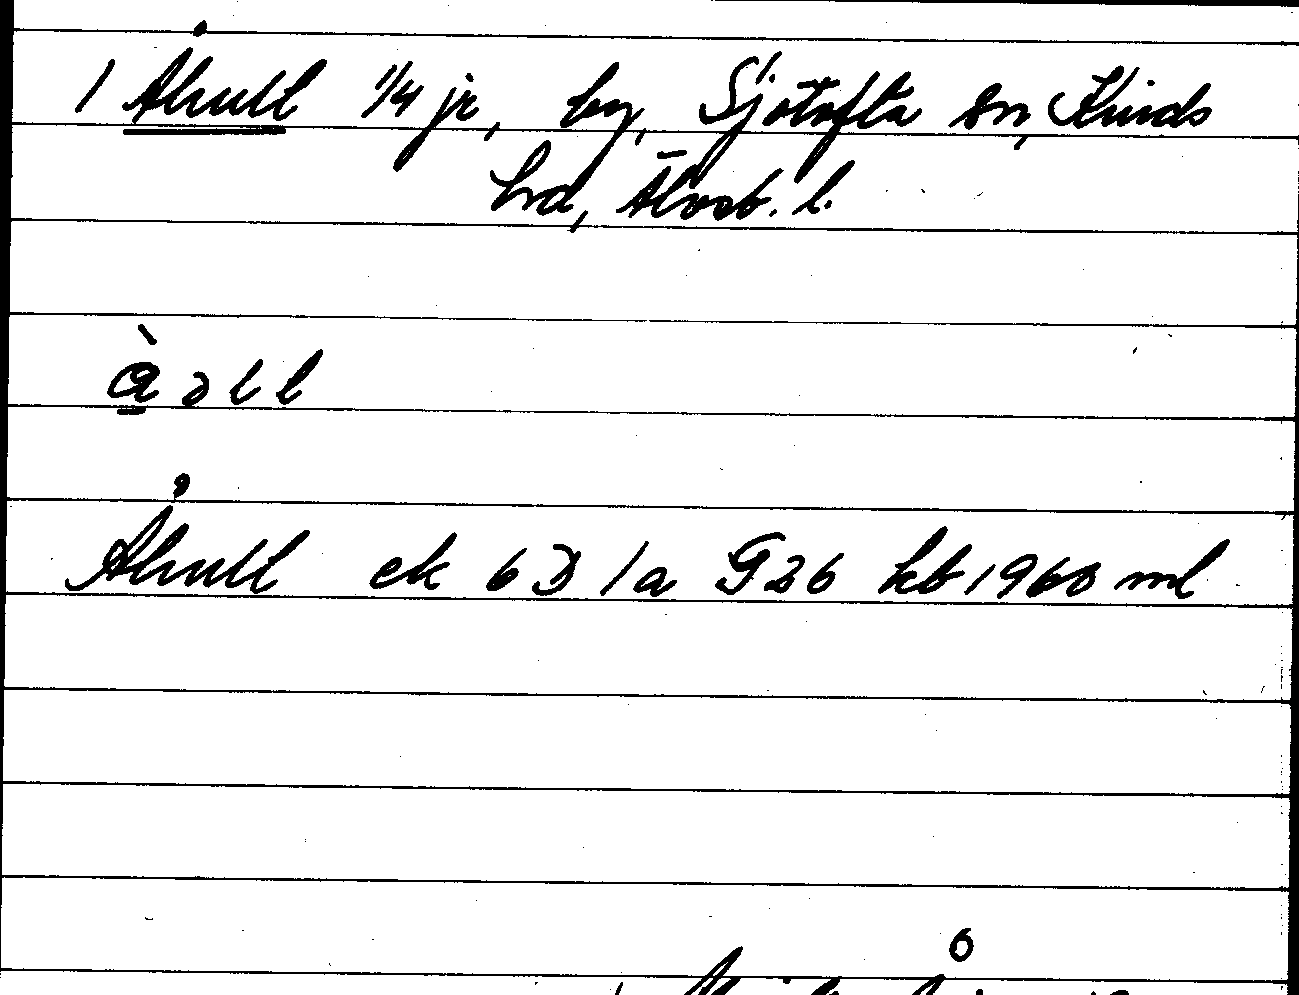 1 Åhult 1/4 jr, by, Sjötofta sn, Kinds
hd, Älvsb. l.
å̀ ə l l
Åhult ek 6D 1a G26 kb 1960 ml